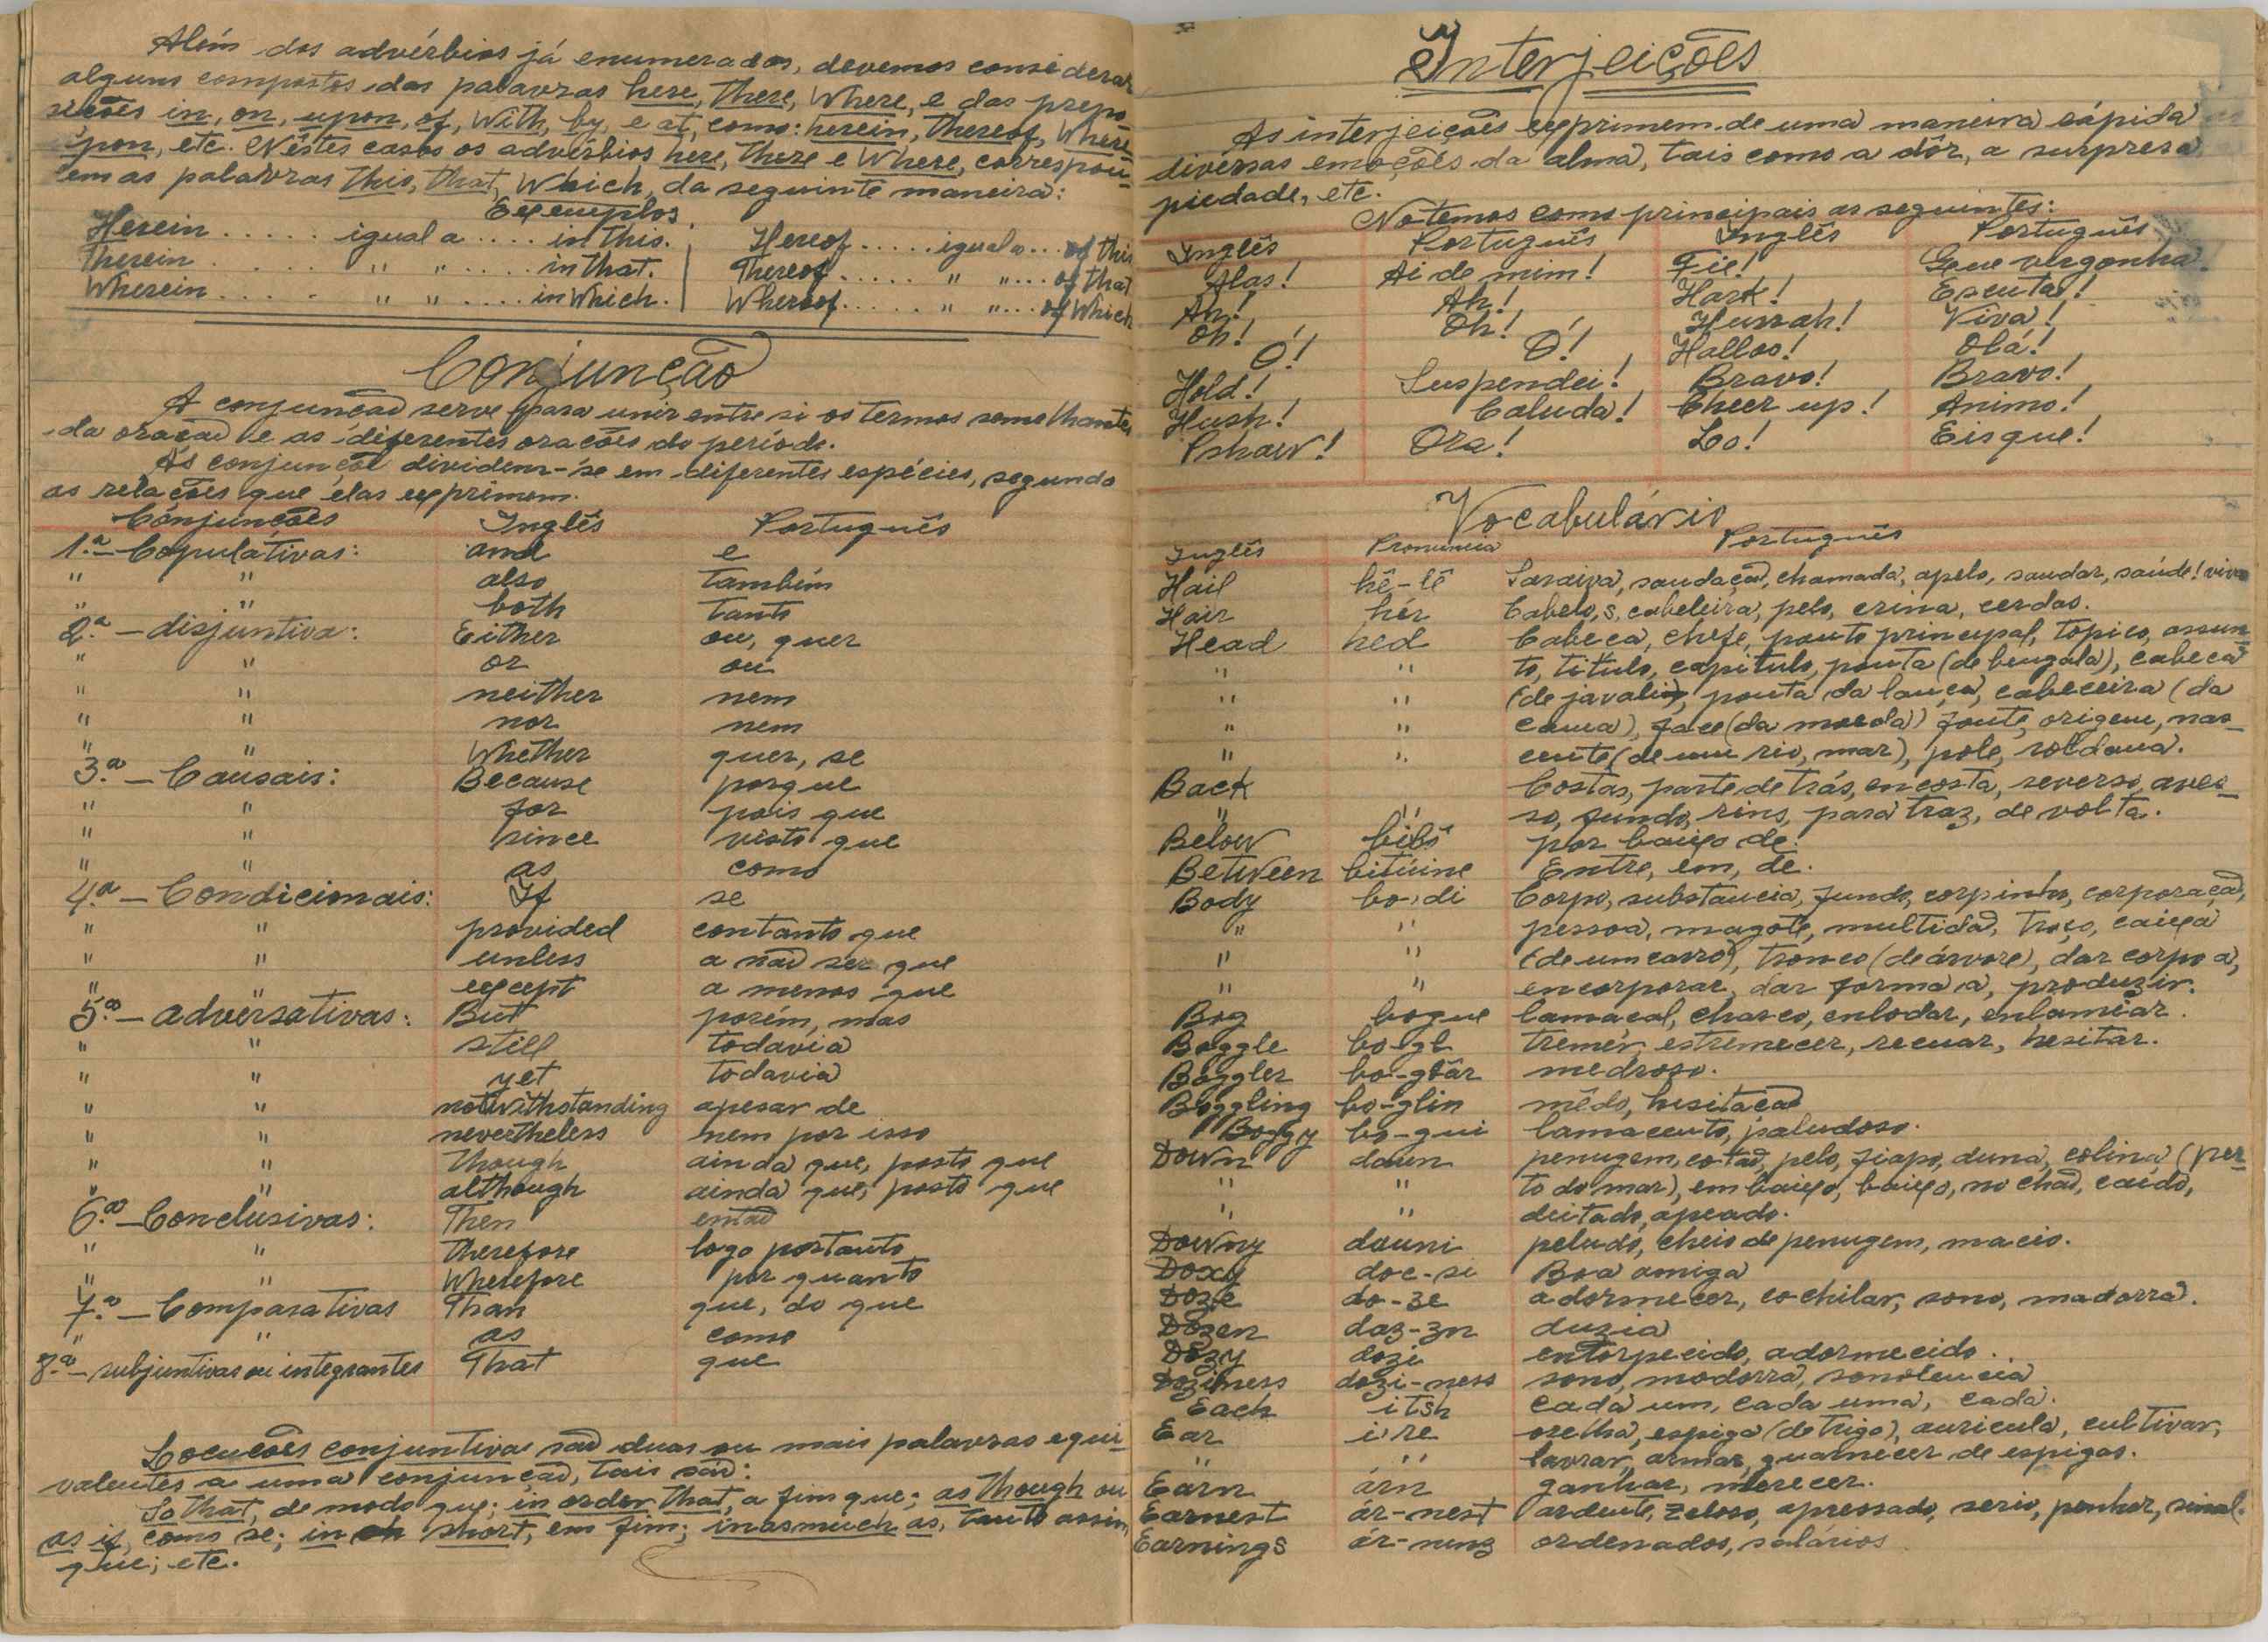 Além dos advérbios já enumerados, devemos considerar
alguns compostos das palavras here, there, where, e das prepo
sições in, on, upon, of, with, by, e at, como: herein, thereof, where
upon, etc. Nêstes casos os advérbios here, there e where, correspon-
em as palavras this, that, which, da seguinte maneira:
Exemplos:
Herein ..... igual a .... in this. Hereof ..... igual a ... of this
Therein ..... " " .... in that. Thereof ..... " " ... of that
Wherein ..... " " .... in which. Whereof ..... " " ... of which
Conjunção
A conjunção serve para unir entre si os termos semelhantes
da oração e as diferentes orações do período.
As conjunções dividem-se em diferentes espécies, segundo
as relações que elas exprimem.
Conjunções Inglês Português
1.ª - Copulativas: and e
" " also também
" " both tanto
2.ª - disjuntiva: Either ou, quer
" " or ou
" " neither nem
" " nor nem
" " Whether quer, se
3.ª - Causais: Because porque
" " for pois que
" " since visto que
" " as como
4.ª - Condicionais: If se
" " provided contanto que
" " unless a não ser que
" " except a menos que
5.ª - adversativas: But porém, mas
" " still todavia
" " yet todavia
" " notwithstanding apesar de
" " nevertheless nem por isso
" " though ainda que, posto que
" " although ainda que, posto que
6.ª - Conclusivas: Then então
" " therefore logo portanto
" " Wherefore por quanto
7.ª - Comparativas Than que, do que
" " as como
8.ª - subjuntivas ou integrantes That que
Locuções conjuntivas são duas ou mais palavras equi-
valentes a uma conjunção, tais são:
So that, de modo que; in order that, a fim que; as though ou
as if, como se; in short, em fim; inasmuch as, tanto assim
que; etc.
Interjeições
As interjeições exprimem de uma maneira rápida
diversas emoções da alma, tais como a dôr, a surpresa
piedade, etc.
Notemos como principais as seguintes:
Inglês Português Inglês Português
Alas! Ai de mim! Fie! Que vergonha.
Ah! Ah! Hark! Escuta!
Oh! Oh! Hurrah! Viva!
Ó! Ó! Halloo! Olá!
Hold! Suspendei! Bravo! Bravo!
Hush! Caluda! Cheer up! Animo!
Pshaw! Ora! Lo! Eis que!
Vocabulário
Inglês Pronuncia Português
Hail hê-lê Saraiva, saudação, chamada, apelo, saudar, saúde! viva
Hair hér Cabelo, s, cabeleira, pelo, crina, cerdas.
Head hed Cabeça, chefe, ponto principal, topico, assun-
" " to, titulo, capitulo, ponta (de bengala), cabeça
" " (de javali), ponta da lança, cabeceira (da
" " cama), face (da moeda) fonte, origem, nas-
" " cente (de um rio, mar), pole, roldana.
Back Costas, parte de trás, encosta, reverso, aves-
" " so, fundo, rins, para traz, de volta.
Below bilô por baixo de.
Between bituine Entre, em, de.
Body bo-di Corpo, substancia, fundo, corpinho, corporação,
" " pessoa, magote, multidão, troço, caixa
" " (de um carro), tronco (de árvore), dar corpo a,
" " encorporar, dar forma a, produzir.
Bog bogue lamaçal, charco, enlodar, enlamear.
Boggle bo-gl tremêr, estremecer, recuar, hesitar.
Boggler bo-glâr medroso.
Boggling bo-glin mêdo, hesitação
Boggy bo-gui lamacento, paludoso.
Down daun penugem, cotão, pelo, fiapo, duna, colina (per-
" " to do mar), em baixo, baixo, no chão, caido,
" " deitado, apeado.
Downy dauni peludo, cheio de penugem, macio.
Doxy doc-si Boa amiga
Doze do-ze adormecer, cochilar, sono, madorra.
Dozen daz-zn duzia
Dozy dozi entorpecido, adormecido.
Doziness dozi-ness sono, modorra, sonolencia
Each itsh cada um, cada uma, cada.
Ear ire orelha, espiga (de trigo), auricula, cultivar,
" " lavrar, armar, guarnecer de espigas.
Earn árn ganhar, merecer.
Earnest ár-nest ardente, zeloso, apressado, serio, penhor, sinal.
Earnings ár-nings ordenados, salários